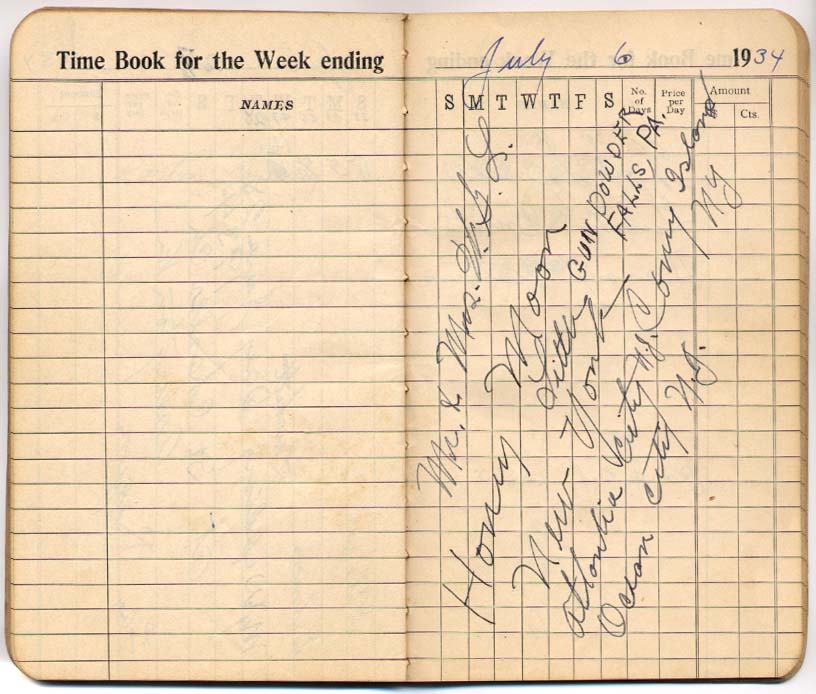 Time Book for the Week ending July 6 1934
NAMES
S M T W T F S No. of Days Price per Day Amount $ Cts.
Mr. & Mrs. W.G.L.
Honey Moon
Little GUN POWDER FALLS, PA.
New York
Atlantic City N.J. Coney Island NY
Ocean City N.J.